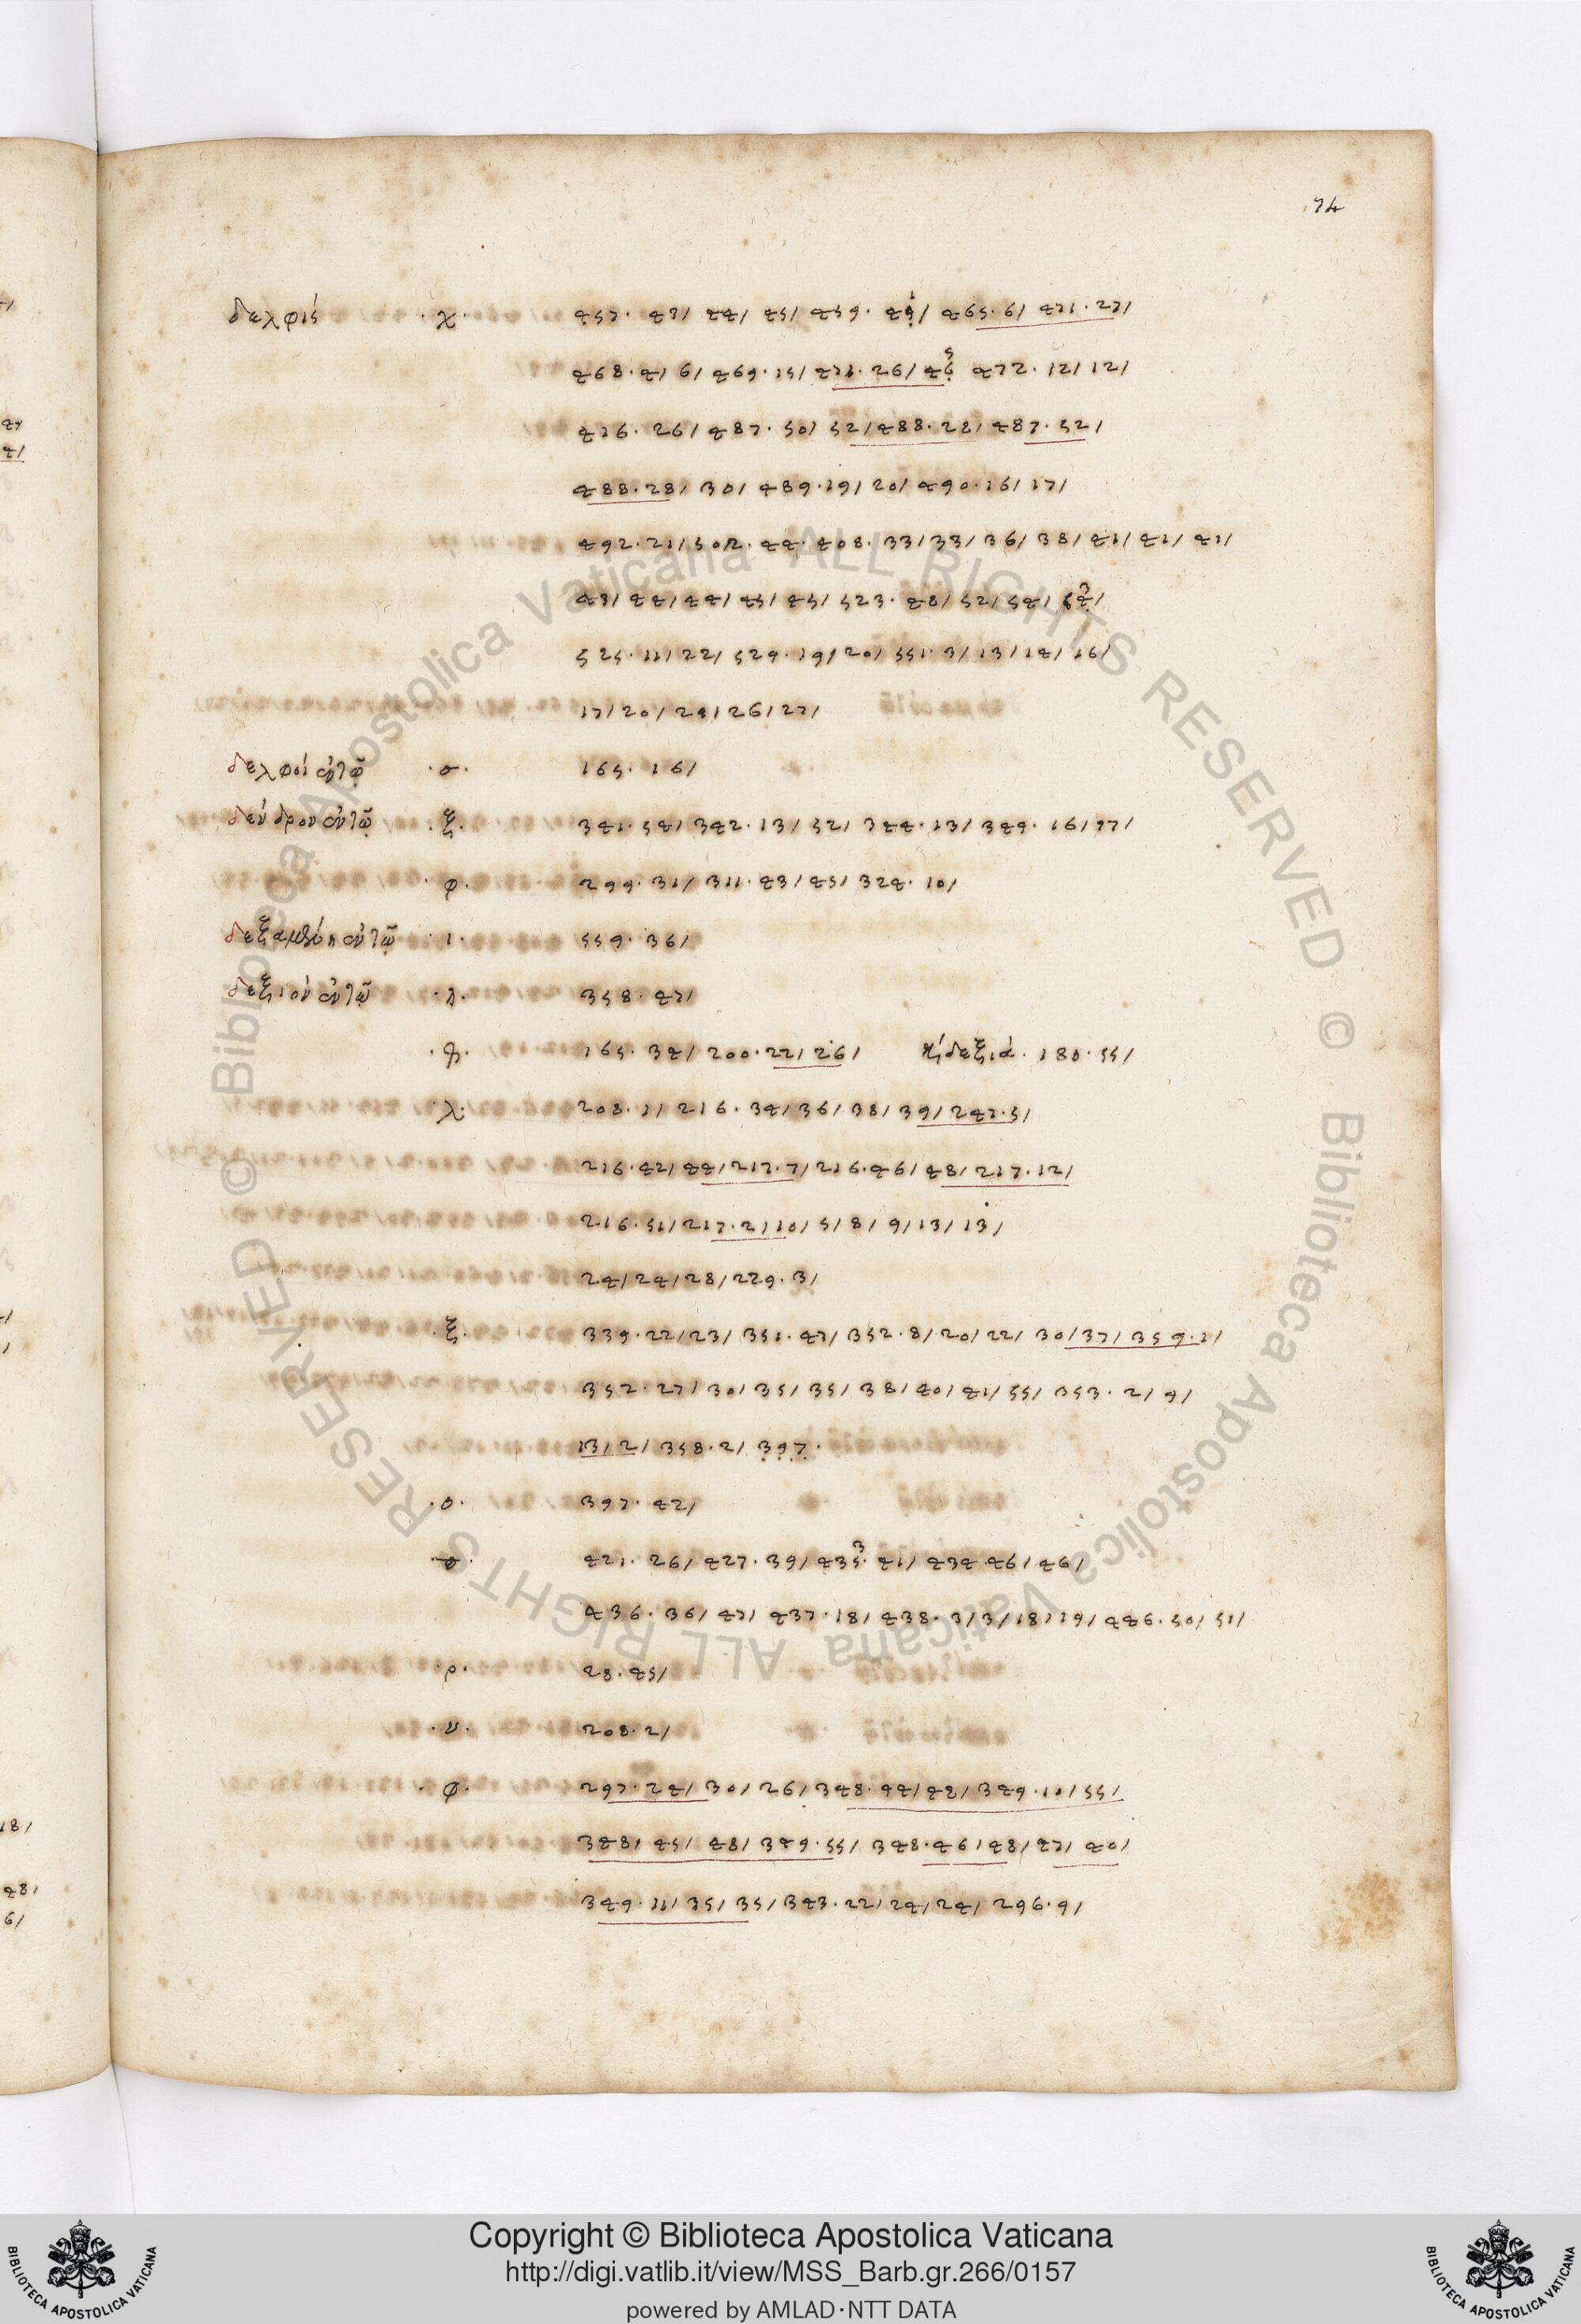 74
δελφίς · χ · 457 · 43/ 44/ 45/ 459 · 49/ 465 · 6/ 471 · 27/
468 · 4/ 6/ 469 · 15/ 471 · 26/ 46 472 · 12/ 12/
476 · 26/ 487 · 50/ 52/ 488 · 28/ 487 · 52/
488 · 28/ 30/ 489 · 19/ 20/ 490 · 16/ 17/
492 · 21/ 502 · 44 · 408 · 33/ 33/ 36/ 38/ 41/ 41/ 41/
43/ 44/ 44/ 45/ 45/ 523 · 48/ 52/ 54/
525 · 11/ 22/ 529 · 19/ 20/ 551 · 3/ 13/ 14/ 16/
17/ 20/ 24/ 26/ 27/
δελφοί · σ · 165 · 16/
δένδρον · ξ · 341 · 54/ 342 · 13/ 52/ 344 · 13/ 349 · 16/ 17/
· φ · 299 · 31/ 311 · 43/ 45/ 324 · 10/
· ι · 559 · 36/
δεξιόν 358 · 47/
165 · 34/ 200 · 22/ 26/ δεξιά · 180 · 55/
· λ · 208 · 1/ 216 · 34/ 36/ 38/ 39/ 247 · 5/
216 · 42/ 44/ 217 · 7/ 216 · 46/ 48/ 217 · 12/
216 · 51/ 217 · 2/ 10/ 5/ 8/ 9/ 13/ 13/
24/ 24/ 28/ 229 · 3/
· ξ · 339 · 22/ 23/ 351 · 47/ 352 · 8/ 20/ 22/ 30/ 37/ 359 · 2/
352 · 27/ 30/ 35/ 35/ 38/ 40/ 41/ 55/ 353 · 2/ 9/
13/ 2/ 358 · 2/ 397 ·
· ο · 397 · 42/
· σ · 421 · 26/ 427 · 39/ 435 · 41/ 434 · 46/ 46/
436 · 36/ 47/ 437 · 18/ 438 · 3/ 3/ 18/ 19/ 446 · 50/ 51/
· ρ · 28 · 45/
· υ · 208 · 2/
· φ · 297 · 24/ 30/ 26/ 348 · 44/ 48/ 349 · 10/ 55/
348/ 45/ 48/ 349 · 55/ 348 · 46/ 48/ 47/ 40/
349 · 11/ 35/ 35/ 343 · 22/ 24/ 24/ 296 · 9/
Copyright © Biblioteca Apostolica Vaticana
http://digi.vatlib.it/view/MSS_Barb.gr.266/0157
powered by AMLAD·NTT DATA
BIBLIOTECA APOSTOLICA VATICANA
BIBLIOTECA APOSTOLICA VATICANA
© Biblioteca Apostolica Vaticana ALL RIGHTS RESERVED
© Biblioteca Apostolica Vaticana ALL RIGHTS RESERVED